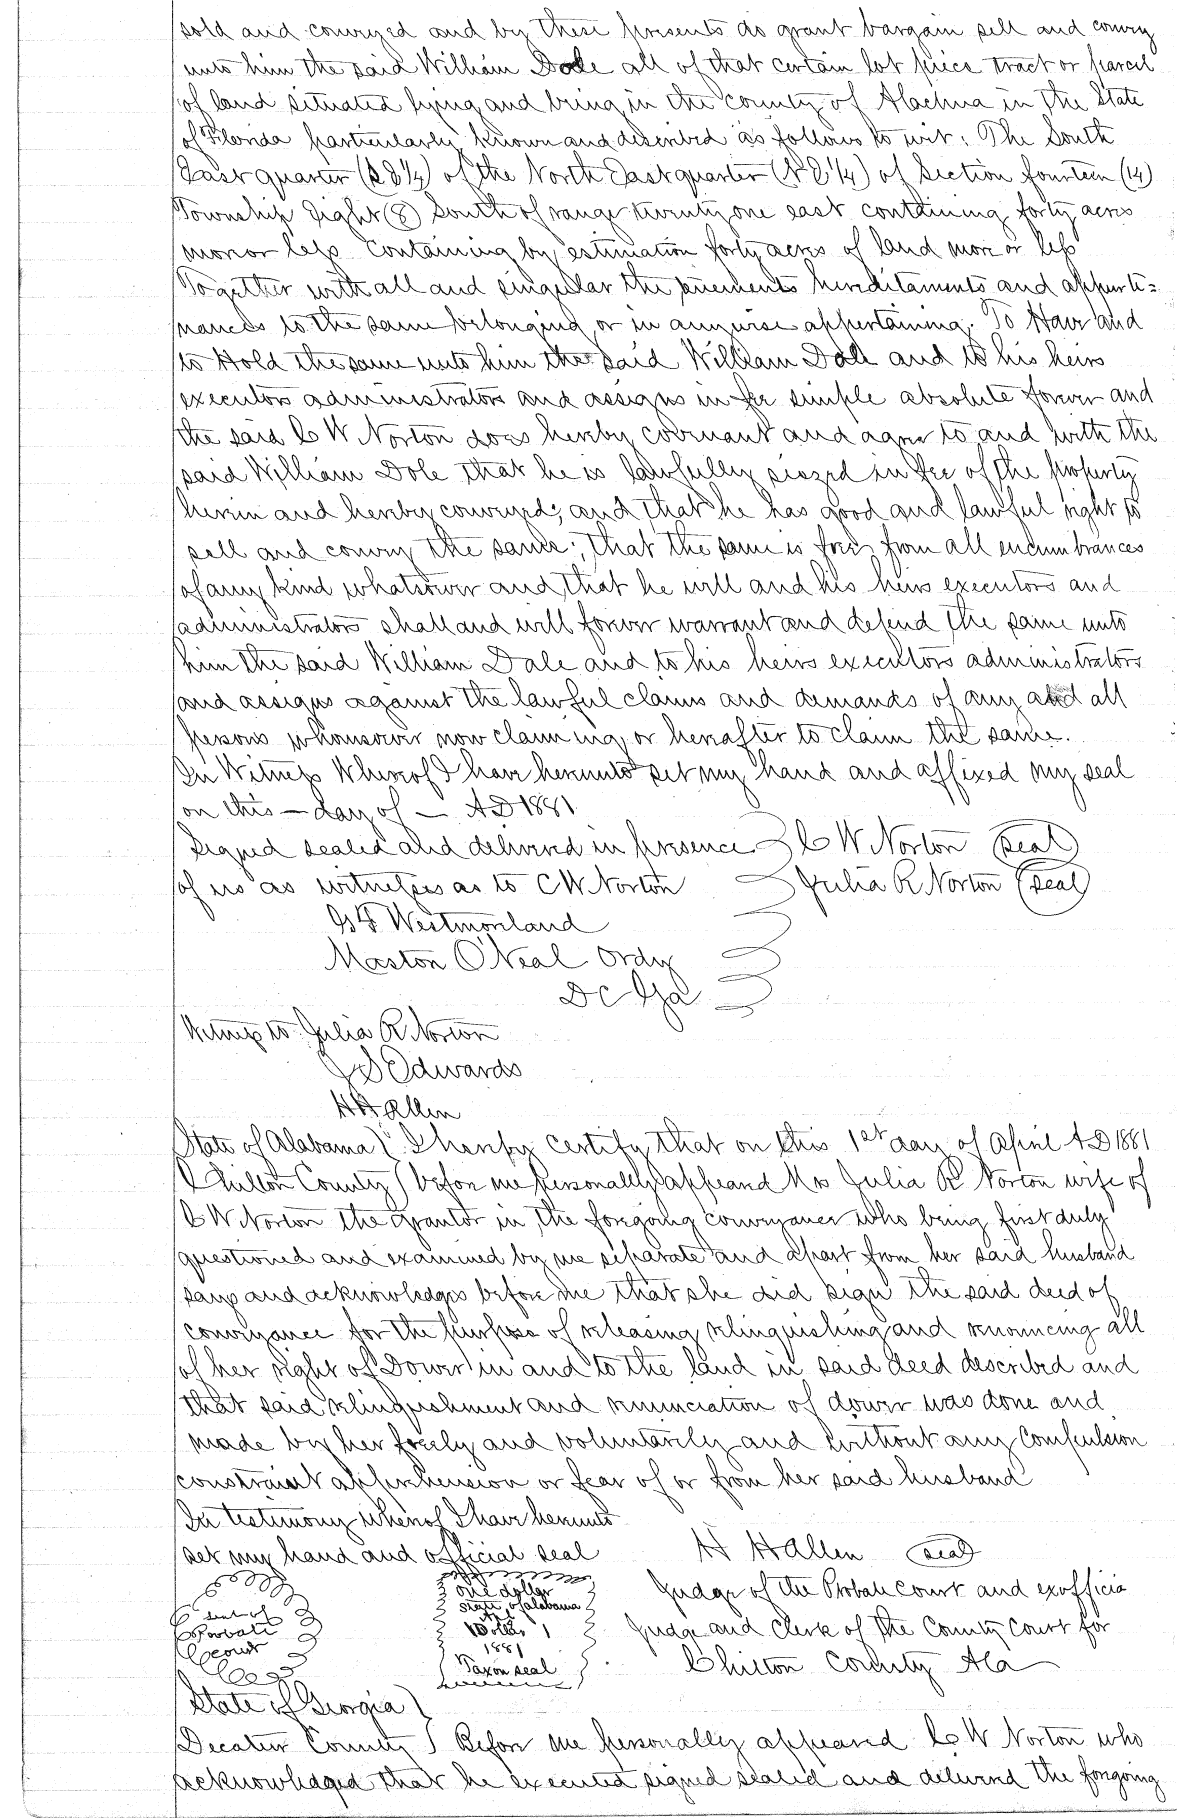 sold and conveyed and by these presents do grant bargain sell and convey
unto him the said William Dole all of that certain lot piece tract or parcel
of land situated lying and being in the county of Alachua in the State
of Florida particularly known and described as follows to wit: The South
East quarter (S E ¼) of the North East quarter (N E ¼) of Section fourteen (14)
Township Eight (8) South of range twenty one east containing forty acres
more or less containing by estimation forty acres of land more or less
Together with all and singular the tenements hereditaments and appurte=
nances to the same belonging or in anywise appertaining. To Have and
to Hold the same unto him the said William Dole and to his heirs
executors administrators and assigns in fee simple absolute forever and
the said C W Norton does hereby covenant and agree to and with the
said William Dole that he is lawfully siezed in fee of the property
herein and hereby conveyed; and that he has good and lawful right to
sell and convey the same; that the same is free from all encumbrances
of any kind whatsoever and that he will and his heirs executors and
administrators shall and will forever warrant and defend the same unto
him the said William Dale and to his heirs executors administrators
and assigns against the lawful claims and demands of any and all
persons whomsoever now claiming or hereafter to claim the same.
In Witness Whereof I have hereunto set my hand and affixed my seal
on this — day of — A D 1881
Signed sealed and delivered in presence C W Norton (seal)
of us as witnesses as to C W Norton Julia R Norton (seal)
G F Westmoreland
Maston O'Neal Ordy
D C Ga
Witness to Julia R Norton
J S Edwards
H H Allen
State of Alabama } I hereby certify that on this 1st day of April A D 1881
Chilton County } before me personally appeared Mrs Julia R Norton wife of
C W Norton the grantor in the foregoing conveyance who being first duly
questioned and examined by me separate and apart from her said husband
says and acknowledges before me that she did sign the said deed of
conveyance for the purpose of releasing relinquishing and renouncing all
of her right of Dower in and to the land in said deed described and
that said relinquishment and renunciation of dower was done and
made by her freely and voluntarily and without any compulsion
constraint apprehension or fear of or from her said husband
In testimony whereof I have hereunto
set my hand and official seal H H Allen (seal)
Judge of the Probate Court and exofficio
Judge and Clerk of the County Court for
Chilton County Ala
Seal of
Probate
Court
One dollar
State of Alabama
1881
Tax on seal
State of Georgia }
Decatur County } Before me personally appeared C W Norton who
acknowledged that he executed signed sealed and delivered the foregoing